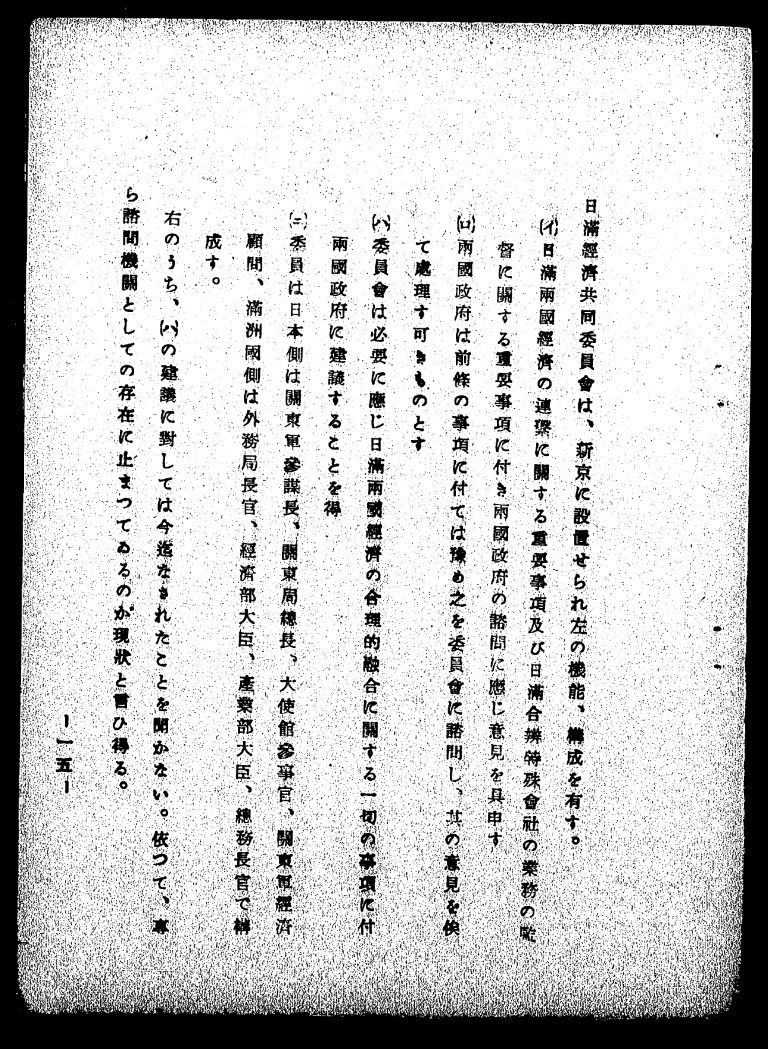 日滿經濟共同委員會は、新京に設置せられ左の機能、構成を有す。
(イ)日滿兩國經濟の連繫に關する重要事項及び日滿合辨特殊會社の業務の監
督に關する重要事項に付き兩國政府の諮問に應じ意見を具申す
(ロ)兩國政府は前條の事項に付ては豫め之を委員會に諮問し、其の意見を俟
て處理す可きものとす
(ハ)委員會は必要に應じ日滿兩國經濟の合理的融合に關する一切の事項に付
兩國政府に建議することを得
(ニ)委員は日本側は關東軍參謀長、關東局總長、大使館參事官、關東軍經濟
顧問、滿洲國側は外務局長官、經濟部大臣、產業部大臣、總務長官で構
成す。
右のうち、(ハ)の建議に對しては今迄なされたことを聞かない。依つて、專
ら諮問機關としての存在に止まつてゐるのが現狀と言ひ得る。
―一五―